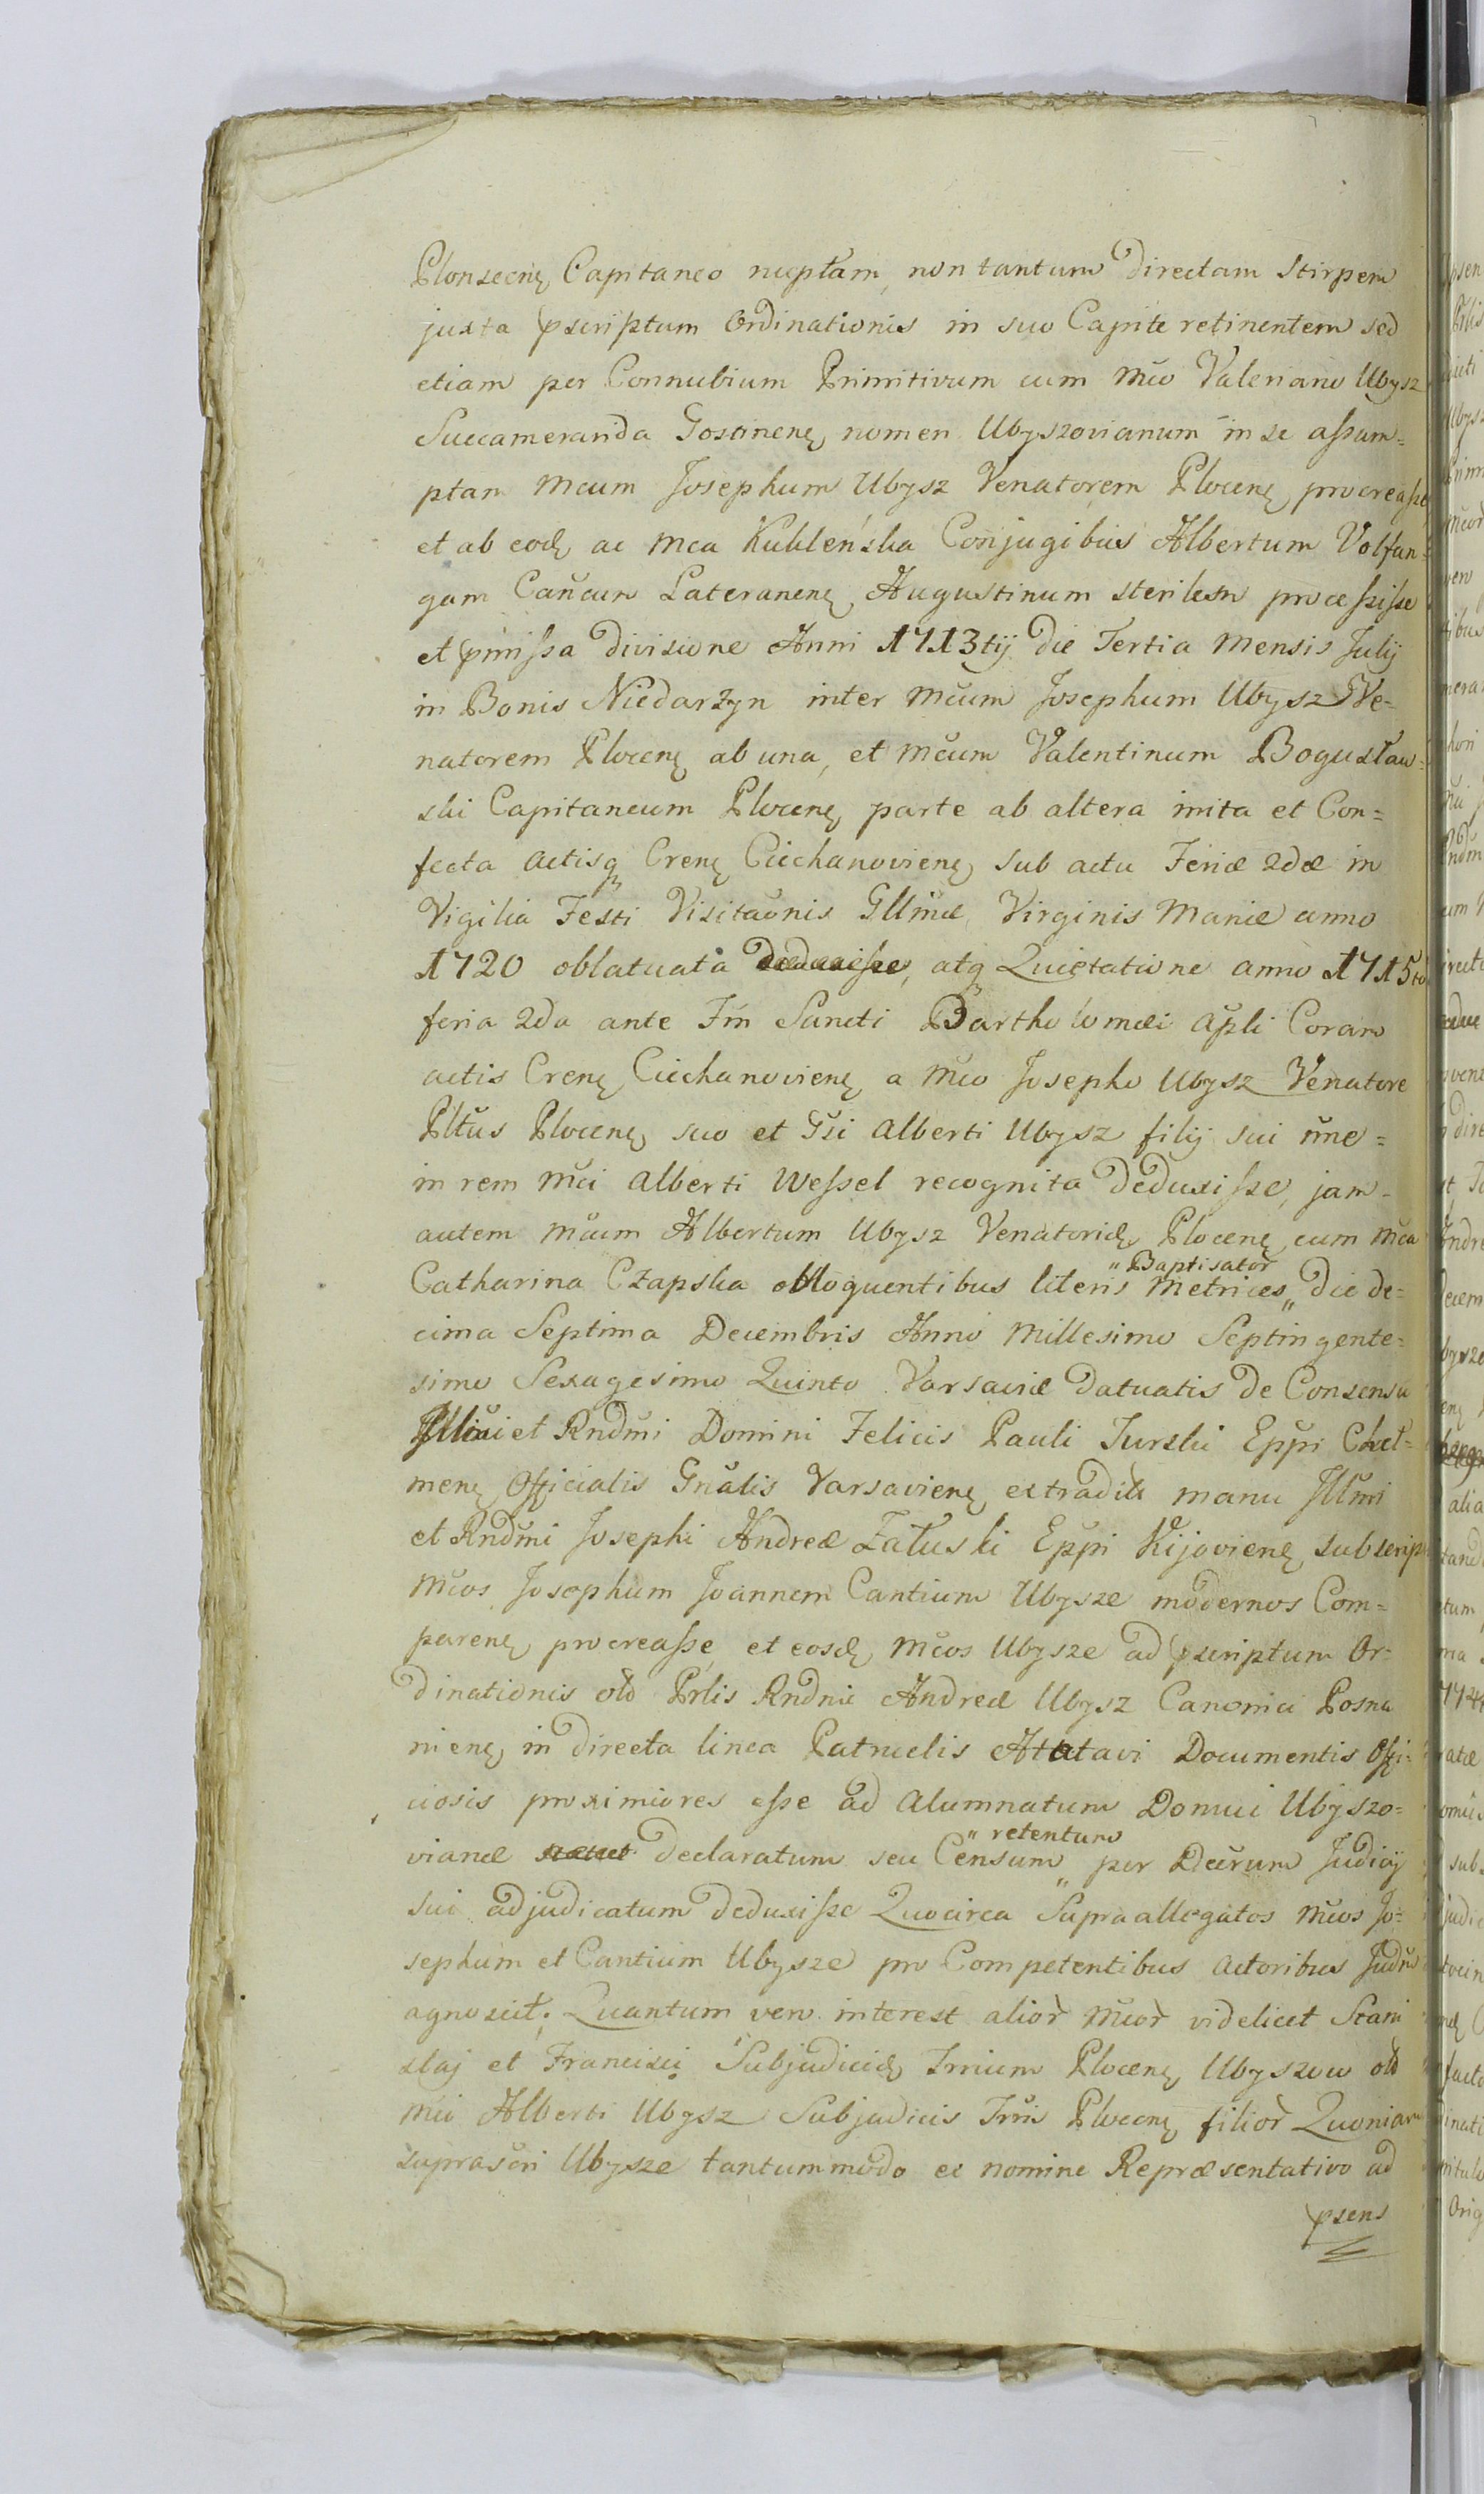 Plonscenę Capitaneo nuptam, non tantum directam Stirpem
juxta pscriptum Ordinationis in suo Capite retinentem sed
etiam per Connubium Primitivum cum Mco Valeriano Ubysz
Succameranda Gostinenę nomen Ubyszovianum in se assum=
ptam Mcum Josephum Ubysz Venatorem Plocenę procreasse
et ab eodę ac Mca Kuklenska Conjugibus Albertum Volfan=
gum Cancum Lateranenę Augustinum sterilem processisse
et pmissa divisione Anni 1713tij die Tertia Mensis Julij
in Bonis Niedarzyn inter Mcum Josephum Ubysz Ve=
natorem Plocenę ab una, et Mcum Valentinum Bogusław=
ski Capitaneum Plocenę parte ab altera inita et Con=
fecta actisq Crenę Ciechanovienę sub actu Feriæ 2dæ in
Vigilia Festi Visitaonis Gllmæ Virginis Mariæ anno
1720 oblatuata atq Quietatione anno 1715to
feria 2da ante Fm Sancti Bartholomæi Apli Coram
actis Crenę Ciechanovienę a Mco Josepho Ubysz Venatore
Pltus Plocenę suo et Gsi Alberti Ubysz filij sui nne=
in rem Mci Alberti Wessel recognita deduxisse, jam=
autem Mcum Albertum Ubysz Venatoridę Plocenę cum Mca
Catharina Czapska obloquentibus literis Metrices „ Baptisator „ die de=
cima Septima Decembris Anno Millesimo Septingente=
simo Sexagesimo Quinto Varsaviæ datuatis de Consensu
Illmi et Rndmi Domini Felicis Pauli Turski Eppi Cheł=
menę Officialis Gnalis Varsavienę extradits manu Illmi
et Rndmi Josephi Andreæ Załuski Eppi Kijovienę subscrip
Mcos Josephum Joannem Cantium Ubysze modernos Com=
parenę procreasse, et eosdę Mcos Ubysze ad pscriptum Or=
dinationis old Prlis Rndni Andreæ Ubysz Canonici Posna
nienę in directa linea Patruelis Atatavi Documentis Offi=
ciosis proximiores esse ad Alumnatum Domui Ubyszo=
vianæ declaratum seu Censum „ retentum „ per Decrum Judicij
sui adjudicatum deduxisse Quocirca Supraallegatos Mcos Jo=
sephum et Cantium Ubysze pro Competentibus Actoribus Judm
agnoscit; Quantum vero interest alior Mcor videlicet Stani
slaj et Francisci Subjudicidę Trrium Plocenę Ubyszow old
Mci Alberti Ubysz Subjudicis Trris Plocenę filior Quoniam
suprascri Ubysze tantummodo ex nomine Repræsentativo ad
psens